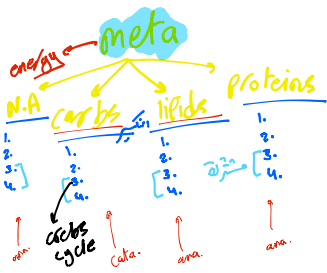 meta
energy
N.A
carbs
lipids
proteins
1.
2.
3.
4.
1.
2.
3.
4.
1.
2.
3.
4.
1.
2.
3.
4.
مشتركة
crebs
cycle
ana.
cata.
ana.
ana.